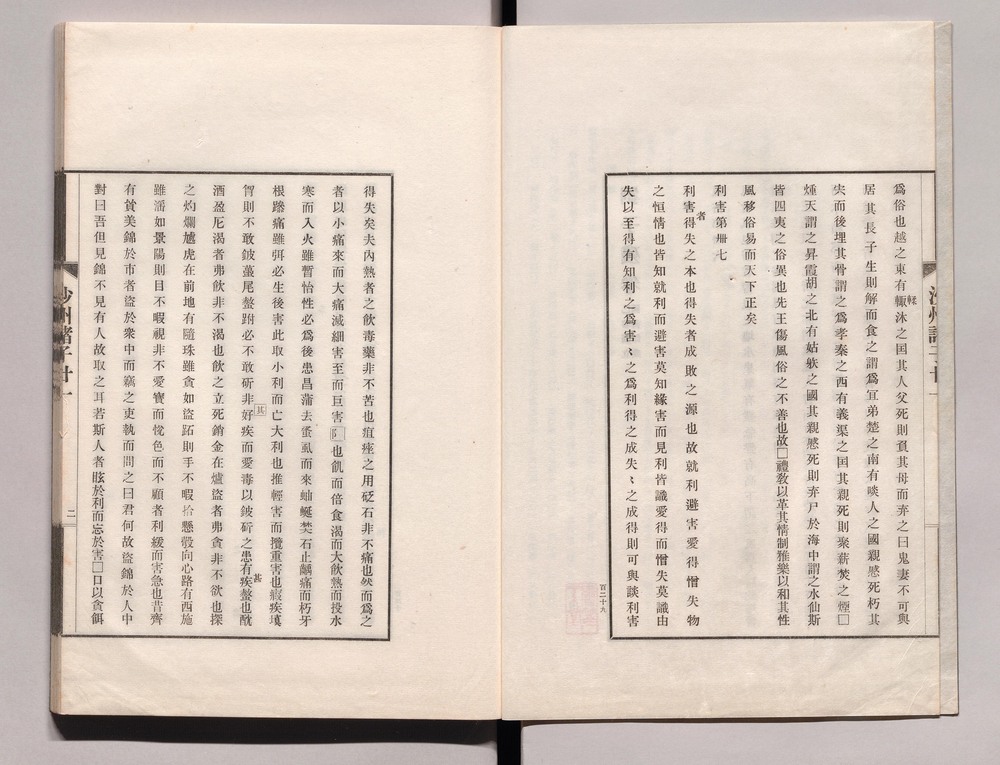 爲俗也越之東有輙沐之国其人父死則負其母而弃之曰鬼妻不可與
居其長子生則解而食之謂爲冝弟楚之南有啖人之國親慼死朽其
宍而後埋其骨謂之爲孝秦之西有義渠之国其親死則聚薪焚之煙□
煄天謂之昇霞胡之北有姑躾之國其親慼死則弃尸於海中謂之水仙斯
皆四夷之俗異也先王傷風俗之不善也故□禮敎以革其情制雅樂以和其性
風移俗易而天下正矣
利害第卌七
利害得失之本也得失者成敗之源也故就利避害愛得憎失物
者
之恒情也皆知就利而避害莫知緣害而見利皆識愛得而憎失莫識由
失以至得有知利之爲害〻之爲利得之成失〻之成得則可與談利害
百二十九
得失矣夫內熱者之飮毒藥非不苦也疽痤之用砭石非不痛也然而爲之
者以小痛來而大痛滅細害至而巨害也飢而倍食渴而大飮熱而投水
寒而入火雖暫怡性必爲後患昌蒲去蚤虱而來蚰蜒焚石止齲痛而朽牙
根躇痛雖弭必生後害此取小利而亡大利也推輕害而攬重害也瘕疾塡
胷則不敢鈹蠆尾螫跗必不敢斫非好疾而愛毒以鈹斫之患有疾螫也酖
其
甚
酒盈卮渴者弗飮非不渴也飮之立死銷金在爐盜者弗貪非不欲也探
之灼爛虓虎在前地有隨珠雖貪如盜跖則手不暇拾懸彀向心路有西施
雖淫如景陽則目不暇視非不愛寳而恱色而不顧者利緩而害急也昔齊
有貧美錦於市者盜於衆中而竊之吏執而問之曰君何故盜錦於人中
對曰吾但見錦不見有人故取之耳若斯人者眩於利而忘於害□口以貪餌
沙州諸子廿一
二